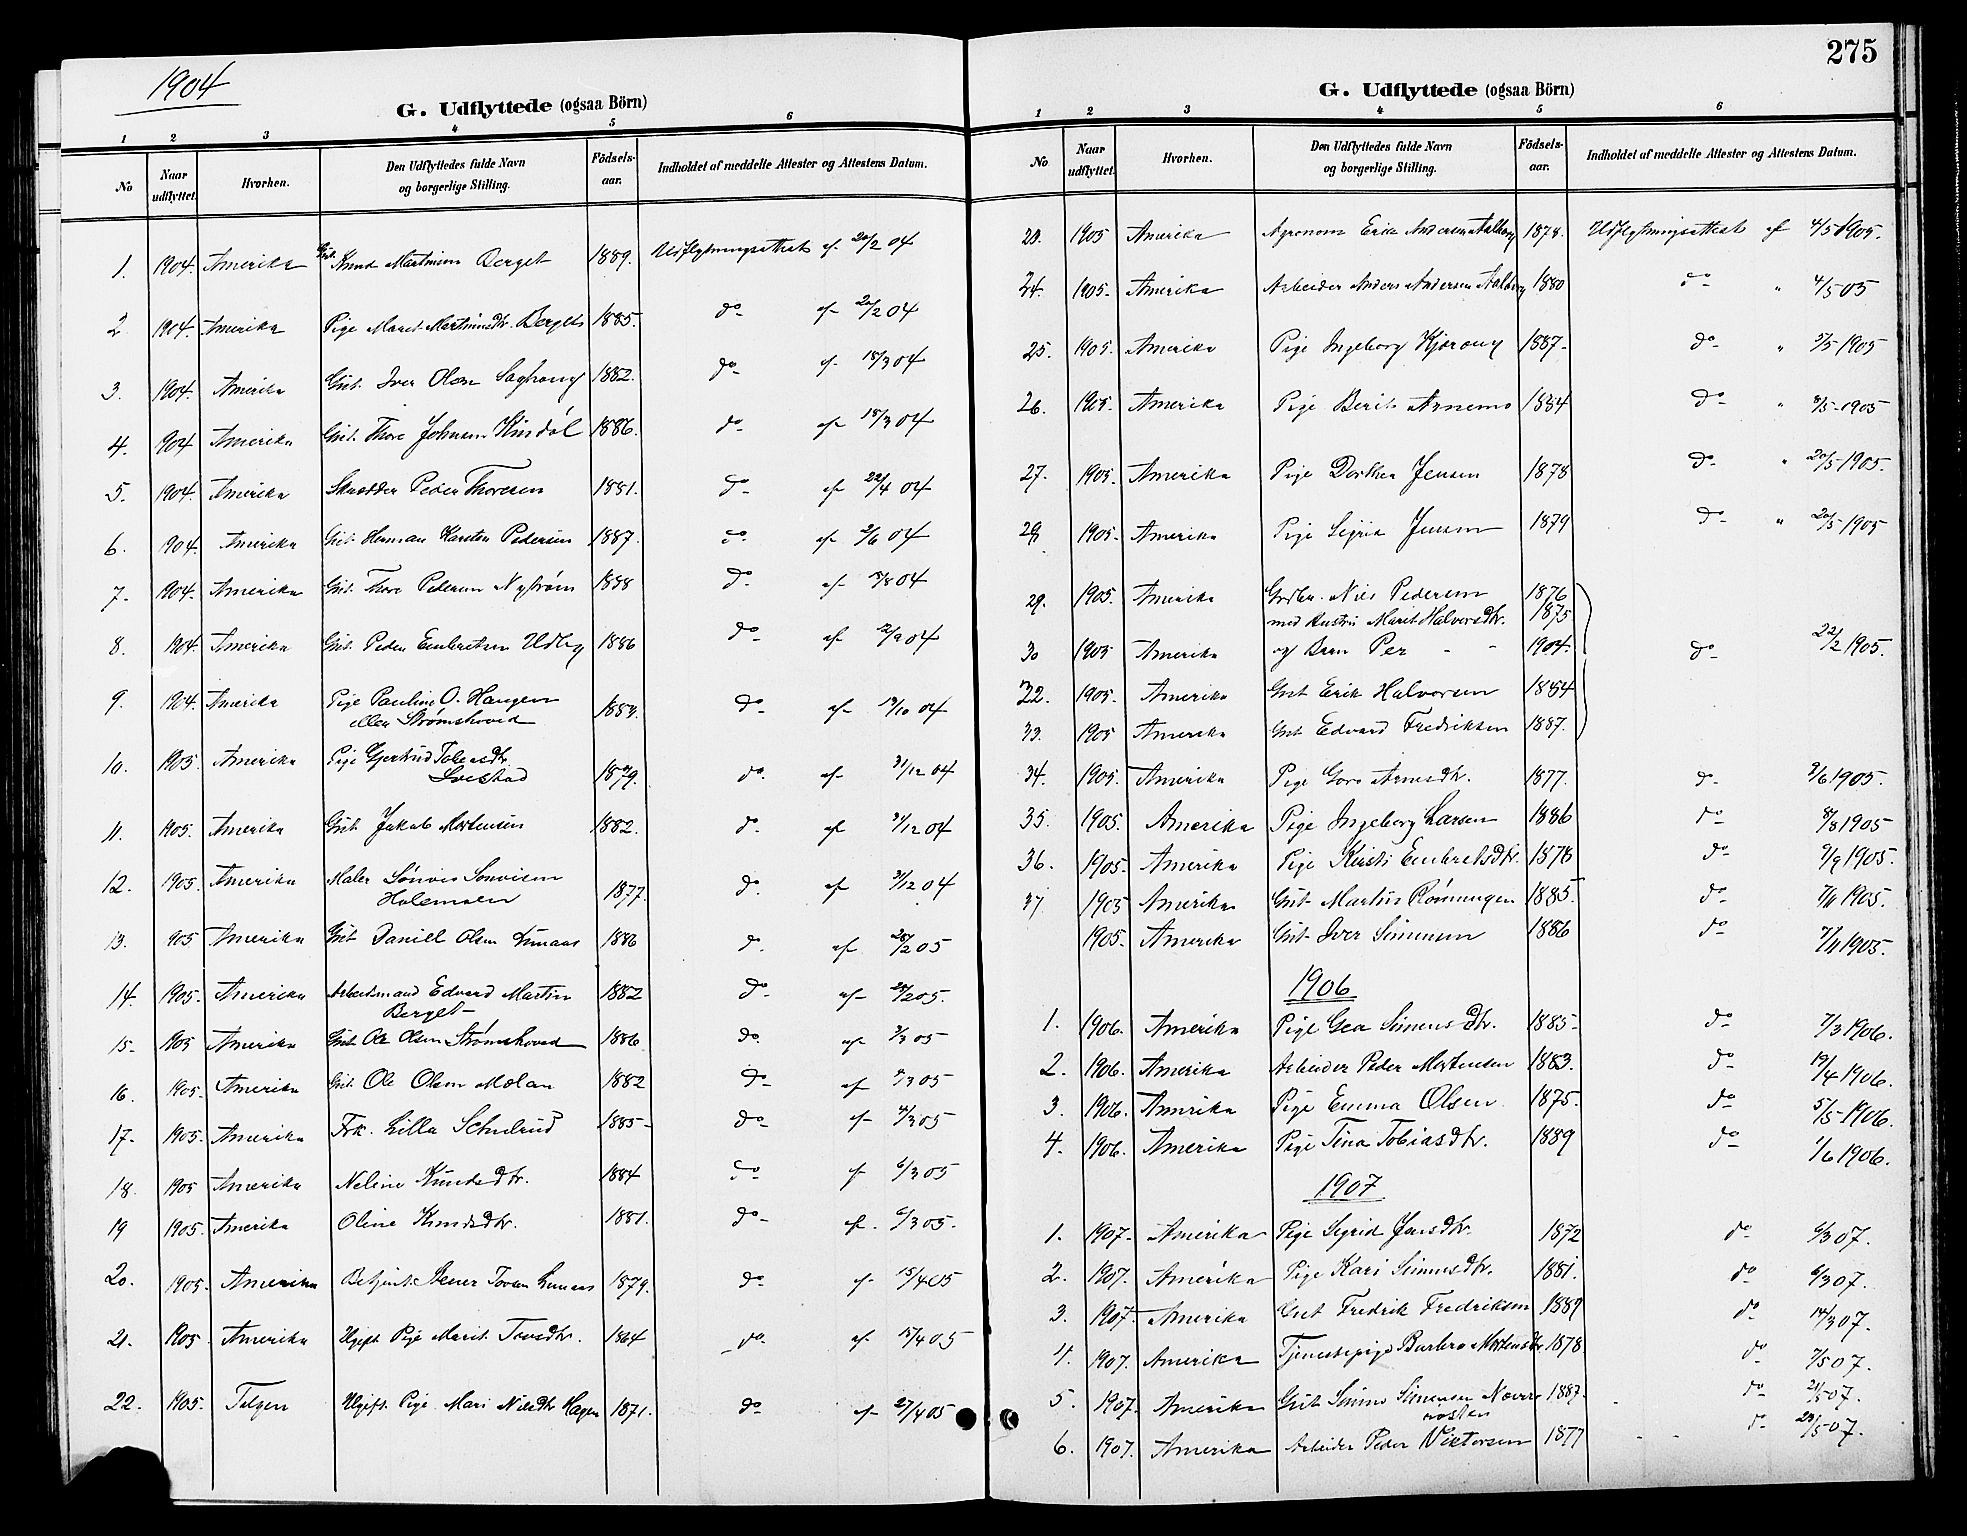 1904
G. Udflyttede (ogsaa Börn)
1 2 3 4 5 6
No Naar udflyttet. Hvorhen. Den Udflyttedes fulde Navn og borgerlige Stilling. Födsels-aar. Indholdet af meddelte Attester og Attestens Datum.
1. 1904. Amerika Gut. Knud Martinsen Berget 1889. Udflytningsattest af 20/2 04
2 1904. Amerika Pige Marit Martinsdtr. Berget 1885. do af 20/2 04
3. 1904. Amerika Gut. Iver Olsen 1882. do af 18/3 04
4. 904 Amerika Gut. Thore Johnsen 1886. do af 18/3 04
5. 1904. Amerika Skrædder Peder Thoresen 1881. do af 22/4 04
6. 904. Amerika Gut. Herman Karsten Pedersen 1887. do af 2/6 04
7. 1904. Amerika Gut. Thore Pedersen Nystrøm 1888 do af /8 04
8. 1904. Amerika Gut. Peder Embretsen Udby 1886 do af /9 04
9. 1904. Amerika Pige Pauline O. Haugen
eller Strømshoved do af /10 04
10. 1905. Amerika Pige Gjertrud Tobiasdtr.
1879. do. af 31/12 04
11. 1905. Amerika Gut. Jakob Mortensen 1882. do. af 31/12 04
12. 1905. Amerika Maler
Holemoen 1877. do. af 31/12 04
13. 905 Amerika Gut Daniel Olsen 1886 do. af 28/2 05
14. 1905. Amerika Arbeidsmand Edvard Martin
Berget 1882 do af 28/2 05.
15. 1905 Amerika Gut Ole Olsen Strømshoved 1886 do. af /3 05
16. 1905. Amerika Gut. Ole Olsen Mælan 1882 do af /3 05
17. 1905. Amerika Frk. Lilla Schulrud 1885 do af 4/3 05
18. 1905 Amerika Neline Knudsdtr. 1884 do af 6/3 05
19 1905. Amerika Oline Knudsdtr. 1881. do af 6/3 05.
20. 1905. Amerika Betjent 1879. do af 15/4 05
21. 1905 Amerika Ugift Pige Marit 1864 do. af 15/4 05
22. 1905. Ugift. Pige. Mari Nilsdtr Hagen 1871. do af 27/4 05
275
G. Udflyttede (ogsaa Börn)
1 2 3 4 5 6
No Naar udflyttet. Hvorhen. Den Udflyttedes fulde Navn og borgerlige Stilling. Födsels-aar. Indholdet af meddelte Attester og Attestens Datum.
23. 1905 Amerika Agronom Erik Andersen Aalberg 1878. Udflytningsattest af 4/5 1905.
24. 1905. Amerika Arbeider Anders Andersen Aalberg 1880 do " 4/5 05
25. 1905. Amerika Pige Ingeborg 1887. do " /5 1905
26. 1905. Amerika Pige Berit Arnemo 1884 do " 8/5 1905
27. 1905. Amerika Pige Dorthea Jensen 1878 do " 20/5 1905.
28 1905. Amerika Pige Jensen 1879 do " 20/5 1905
29. 1905. Amerika Grdbr. Nils Pedersen 1876
med Hustru Marit Halvorsdtr. 1875
30 1905 Amerika og Barn Per - - 1904. do 22/2 1905.
1905. Amerika Gut Erik Halvorsen 1884
33. 1905 Amerika Gut Edvard Fredriksen 1887.
34. 1905. Amerika Pige Goro Arnesdtr. 1877. do /6 1905.
35. 1905. Amerika Pige Ingeborg Larsen 1886 do 8/8 1905
36. 1905. Amerika Pige Kirsti Embretsdtr. 1878 do 9/9 1905.
37 1905 Amerika Gut Martin Rønningen 1885. do 7/11 1905.
1905. Amerika Gut Iver Simensen 1886 do 7/11 1905.
1906
1. 1906. Amerika Pige Gea Simensdtr. 1885. do 7/3 1906.
2. 1906. Amerika Arbeider Peder Mortensen 1883. do 19/4 1906.
3. 1906. Amerika Pige Emma Olsen 1875. do 5/5 1906.
4. 1906. Amerika Pige Tina Tobiasdtr. 1889 do 1/6 1906.
1907
1. 1907. Amerika Pige Sigrid Jensdtr. 1872 do 6/3 07.
2. 1907. Amerika Pige Kari Simensdtr. 1881. do 6/3 07.
3. 1907. Amerika Gut Fredrik Fredriksen 1889 do 14/3 07.
4. 1907. Amerika Tjenestepige Barbro Mortensdtr 1878 do 7/5 07.
5. 1907. Amerika Gut Simen Simensen 1887. do 21/5 07.
6. 1907. Amerika Arbeider Peder Viktorsen 1877 do 23/5 07.